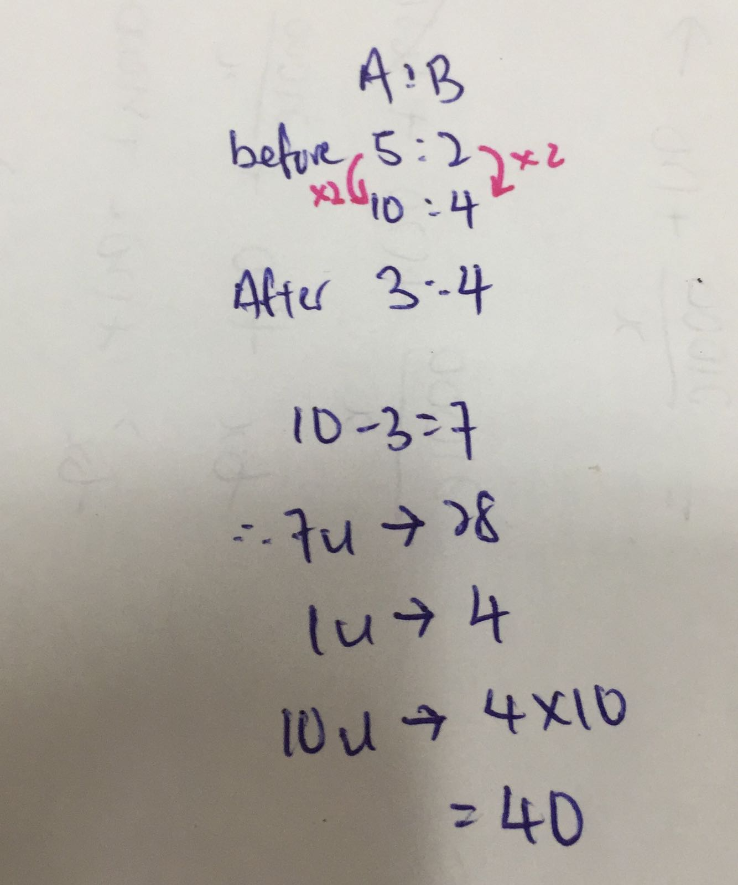 A:B
before 5:2 ×2
×2 10:4
After 3:4
10-3=7
∴ 7u → 28
1u → 4
10u → 4×10
= 40